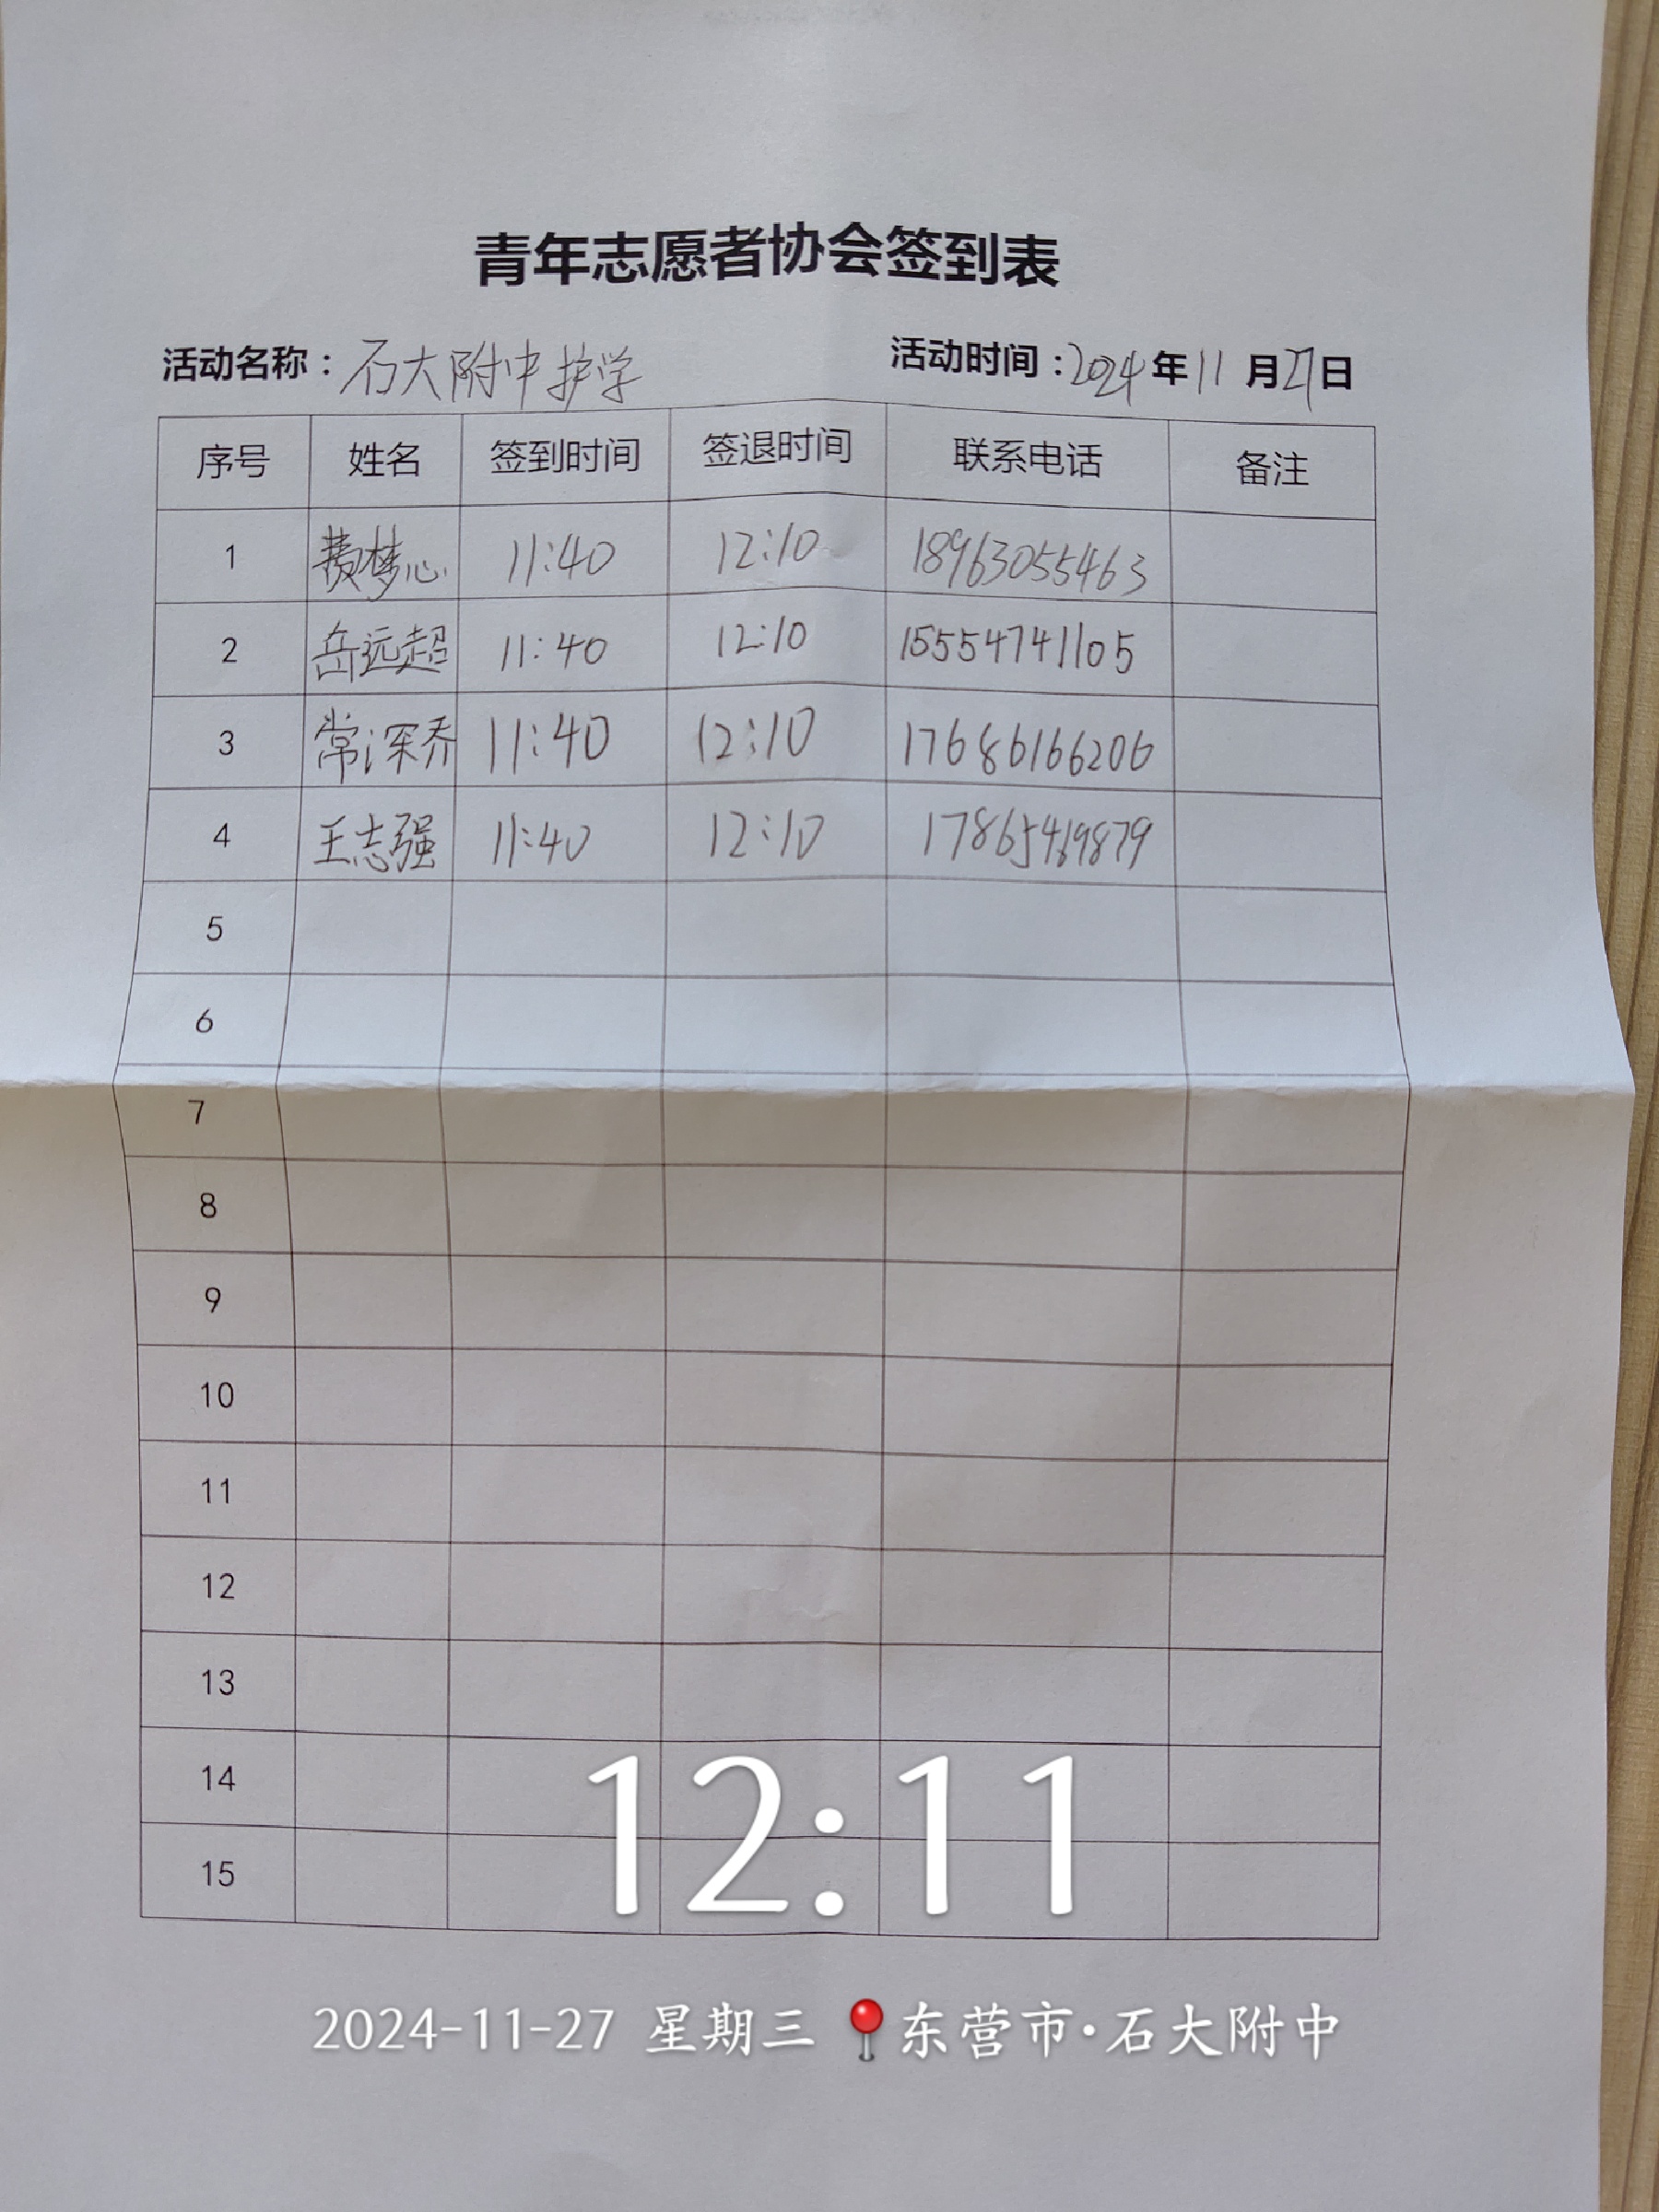 青年志愿者协会签到表
活动名称：石大附中护学 活动时间：2024年11月27日
序号 姓名 签到时间 签退时间 联系电话 备注
1 费梦心 11:40 12:10 18963055463
2 岳远超 11:40 12:10 15554741105
3 常深乔 11:40 12:10 17686166206
4 王志强 11:40 12:10
5
6
7
8
9
10
11
12
13
14
15
12:11
2024-11-27 星期三 东营市·石大附中